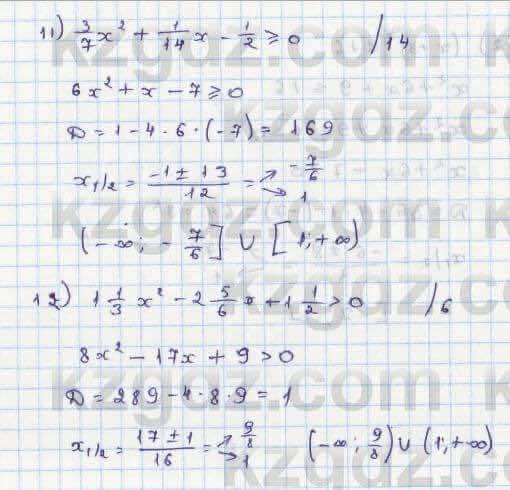 11) 3/7 x² + 1/14 x - 1/2 ⩾ 0 /14
6x² + x - 7 ⩾ 0
D = 1 - 4 · 6 · (-7) = 169
x₁/₂ = (-1 ± 13)/12 = ↗ -7/6 ↘ 1
(-∞; -7/6] ∪ [1; +∞)
12) 1 1/3 x² - 2 5/6 x + 1 1/2 > 0 /6
8x² - 17x + 9 > 0
D = 289 - 4 · 8 · 9 = 1
x₁/₂ = (17 ± 1)/16 = ↗ 9/8 ↘ 1 (-∞; 9/8) ∪ (1; +∞)
kzgdz.com